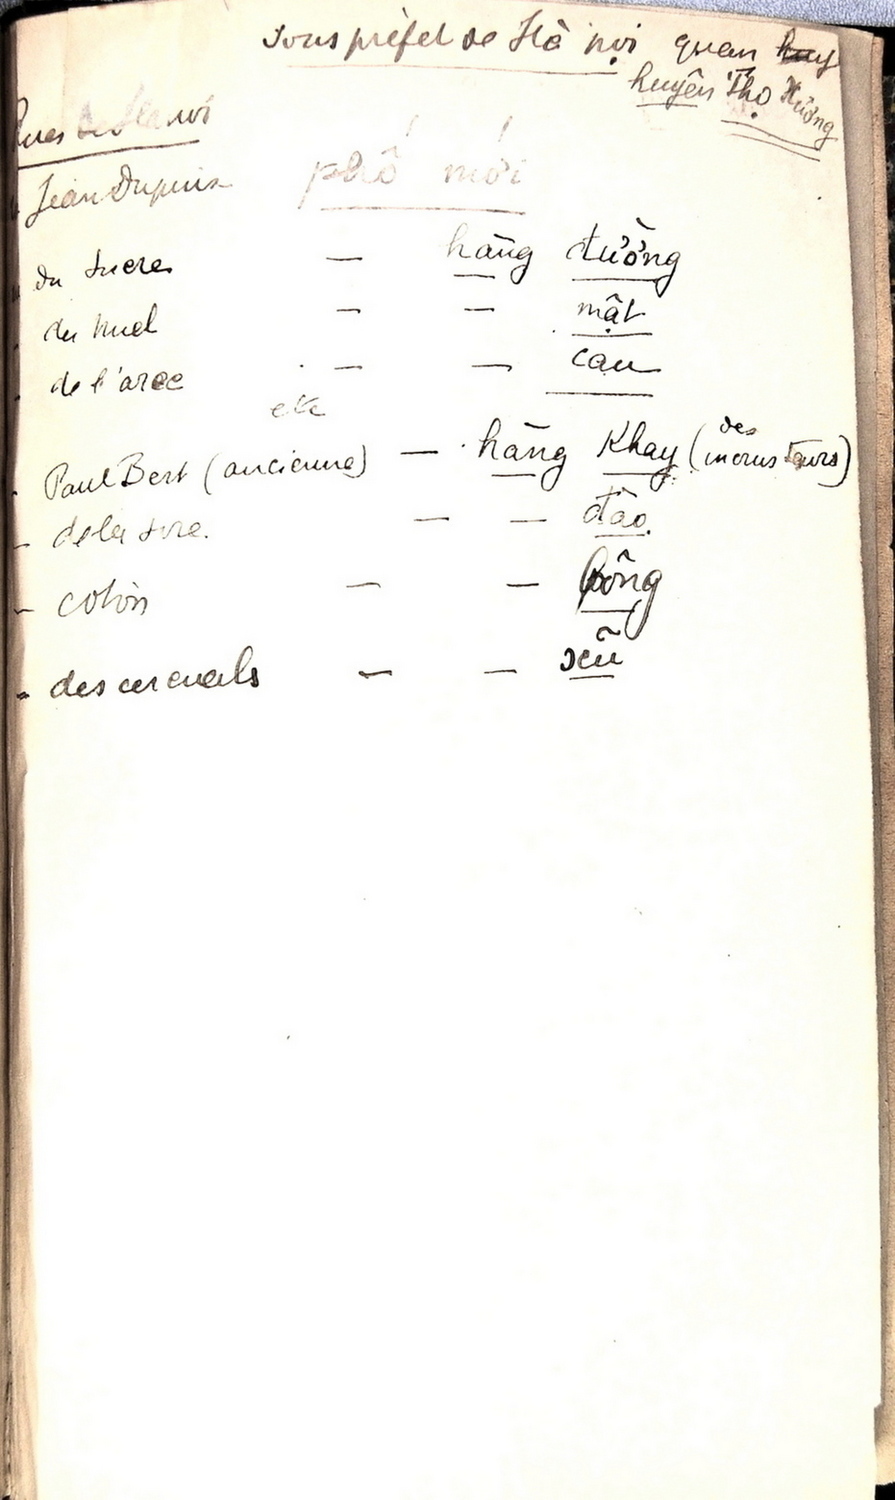 Sous préfet de Hà nọi quan huy
huyên Thọ Xương
Rues de Hanoi
Jean Dupuis phố mới
du sucre — hàng đường
du miel — — mật
de l'arec — — cau
etc
Paul Bert (ancienne) — hàng Khay (des incrusteurs)
de la soie. — — đào
coton — — bông
des cercueils — — xũ